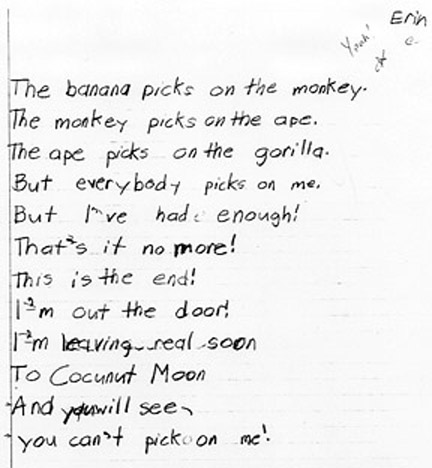 Erin
Yeah!
The banana picks on the monkey.
The monkey picks on the ape.
The ape picks on the gorilla.
But everybody picks on me.
But I've had enough!
That's it no more!
This is the end!
I'm out the door!
I'm leaving real soon
To Cocunut Moon
And you will see,
you can't pick on me!